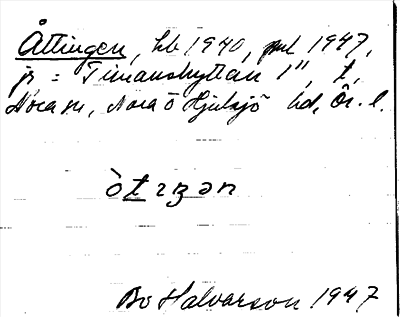 Åttingen, hb 1940, pul 1947,
jz = Timanshyttan 1", t,
Nora sn, Nora o Hjulsjö hd, Ör. l.
òtɪʒən
Bo Halvarson 1947